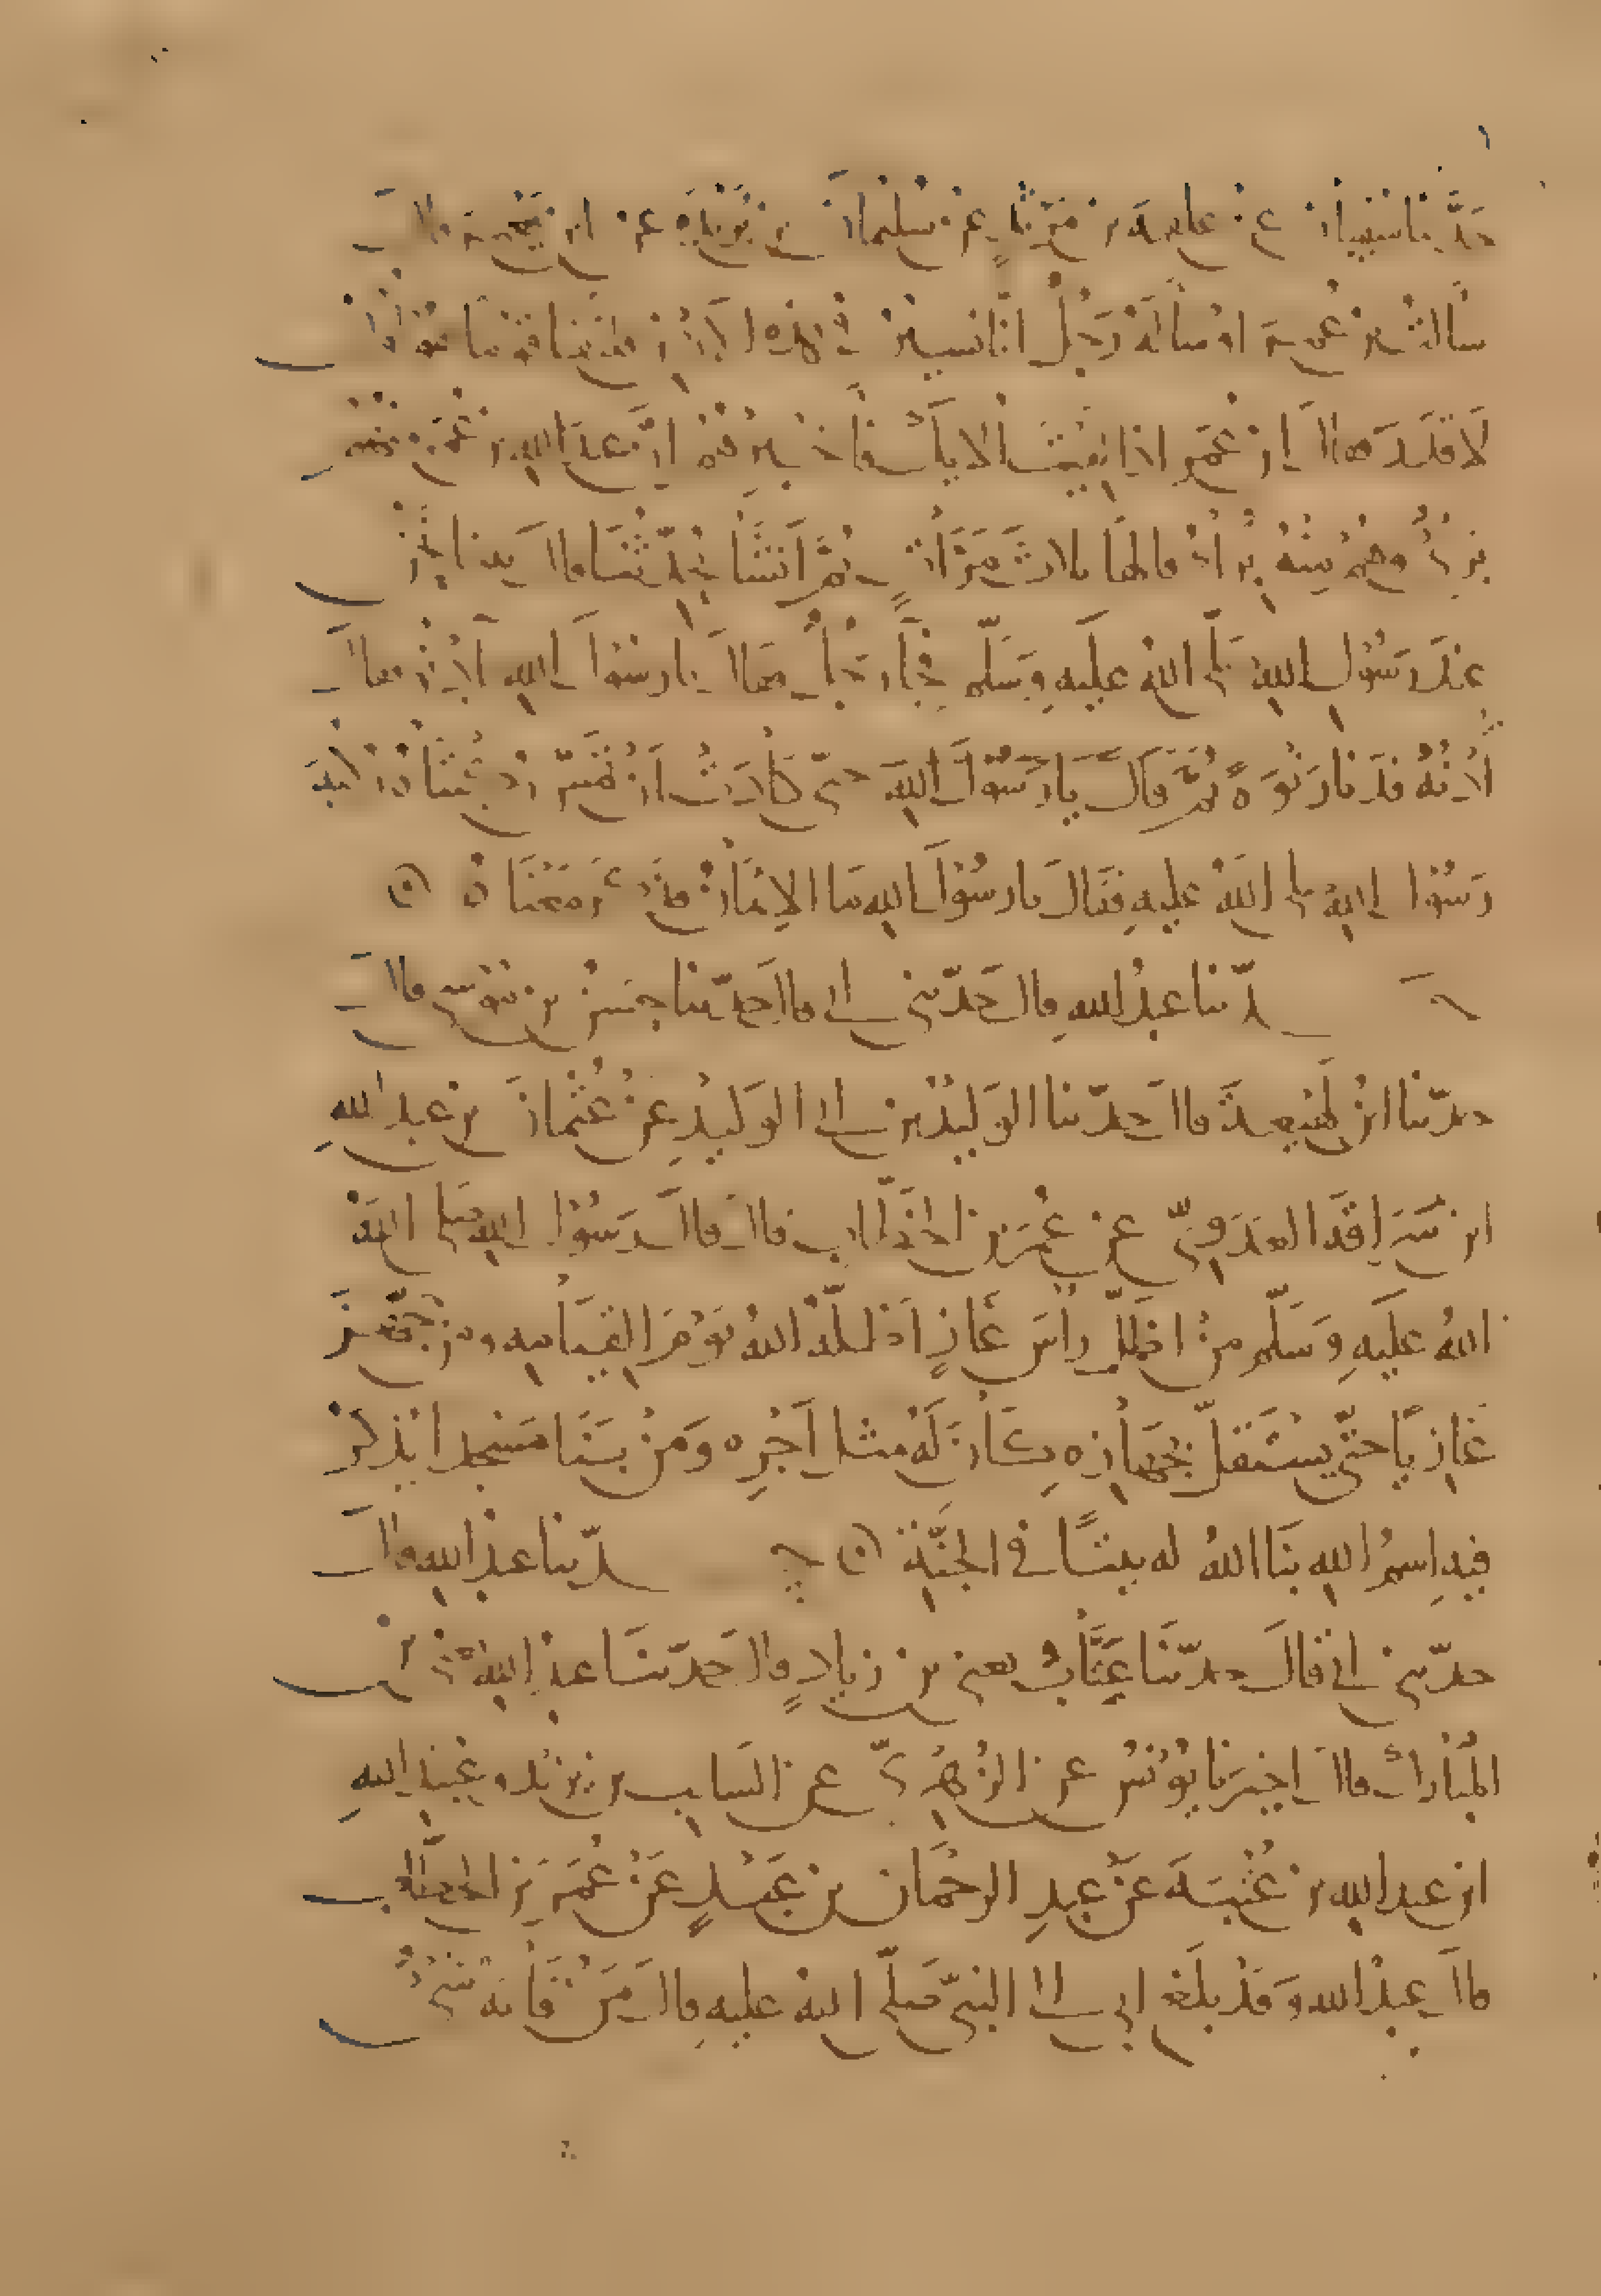 حدثنا سفيان عن علقمة بن مرثد عن سليمان بن بريدة عن ابن يعمر قال
سألت ابن عمر او سأله رجل انا نسير في هذه الارض فنلقا قوما يقولون
لا قدر فقال ابن عمر اذا لقيت اولايك فأخبرهم ان عبد الله بن عمر منهم
بري وهم منه برآء قالها ثلاث مرات ثم انشأ يحدثنا قال بينا نحن
عند رسول الله صلى الله عليه وسلم فجآء رجل فقال يا رسول الله آدنو فقال
ادنه فدنا رتوة ثم قال يا رسول الله حتى كادت ان تمس ركبتاه ركبة
رسول الله صلى الله عليه فقال يا رسول الله ما الايمان فذكر معناه
حدثنا عبد الله قال حدثني ابي قال حدثنا حسن بن موسى قال
حدثنا ابن لهيعة قال حدثنا الوليد بن ابي الوليد عن عثمان بن عبد الله
ابن سراقة العدوي عن عمر بن الخطاب قال قال رسول الله صلى الله
الله عليه وسلم من اظل راس غاز اظله الله يوم القيامه ومن جهز
غازيا حتى يستقل بجهازه كان له مثل اجره ومن بنا مسجدا يذكر
فيه اسم الله بنا الله له بيتا في الجنة حدثنا عبد الله قال
حدثني ابي قال حدثنا عتاب يعني بن زياد قال حدثنا عبد الله يعني ابن
المبارك قال اخبرنا يونس عن الزهري عن السايب بن يزيد وعبيد الله
ابن عبد الله بن عتبة عن عبد الرحمان بن عبد عن عمر بن الخطاب
قال عبد الله وقد بلغ ابي الى النبي صلى الله عليه قال من فاته شي